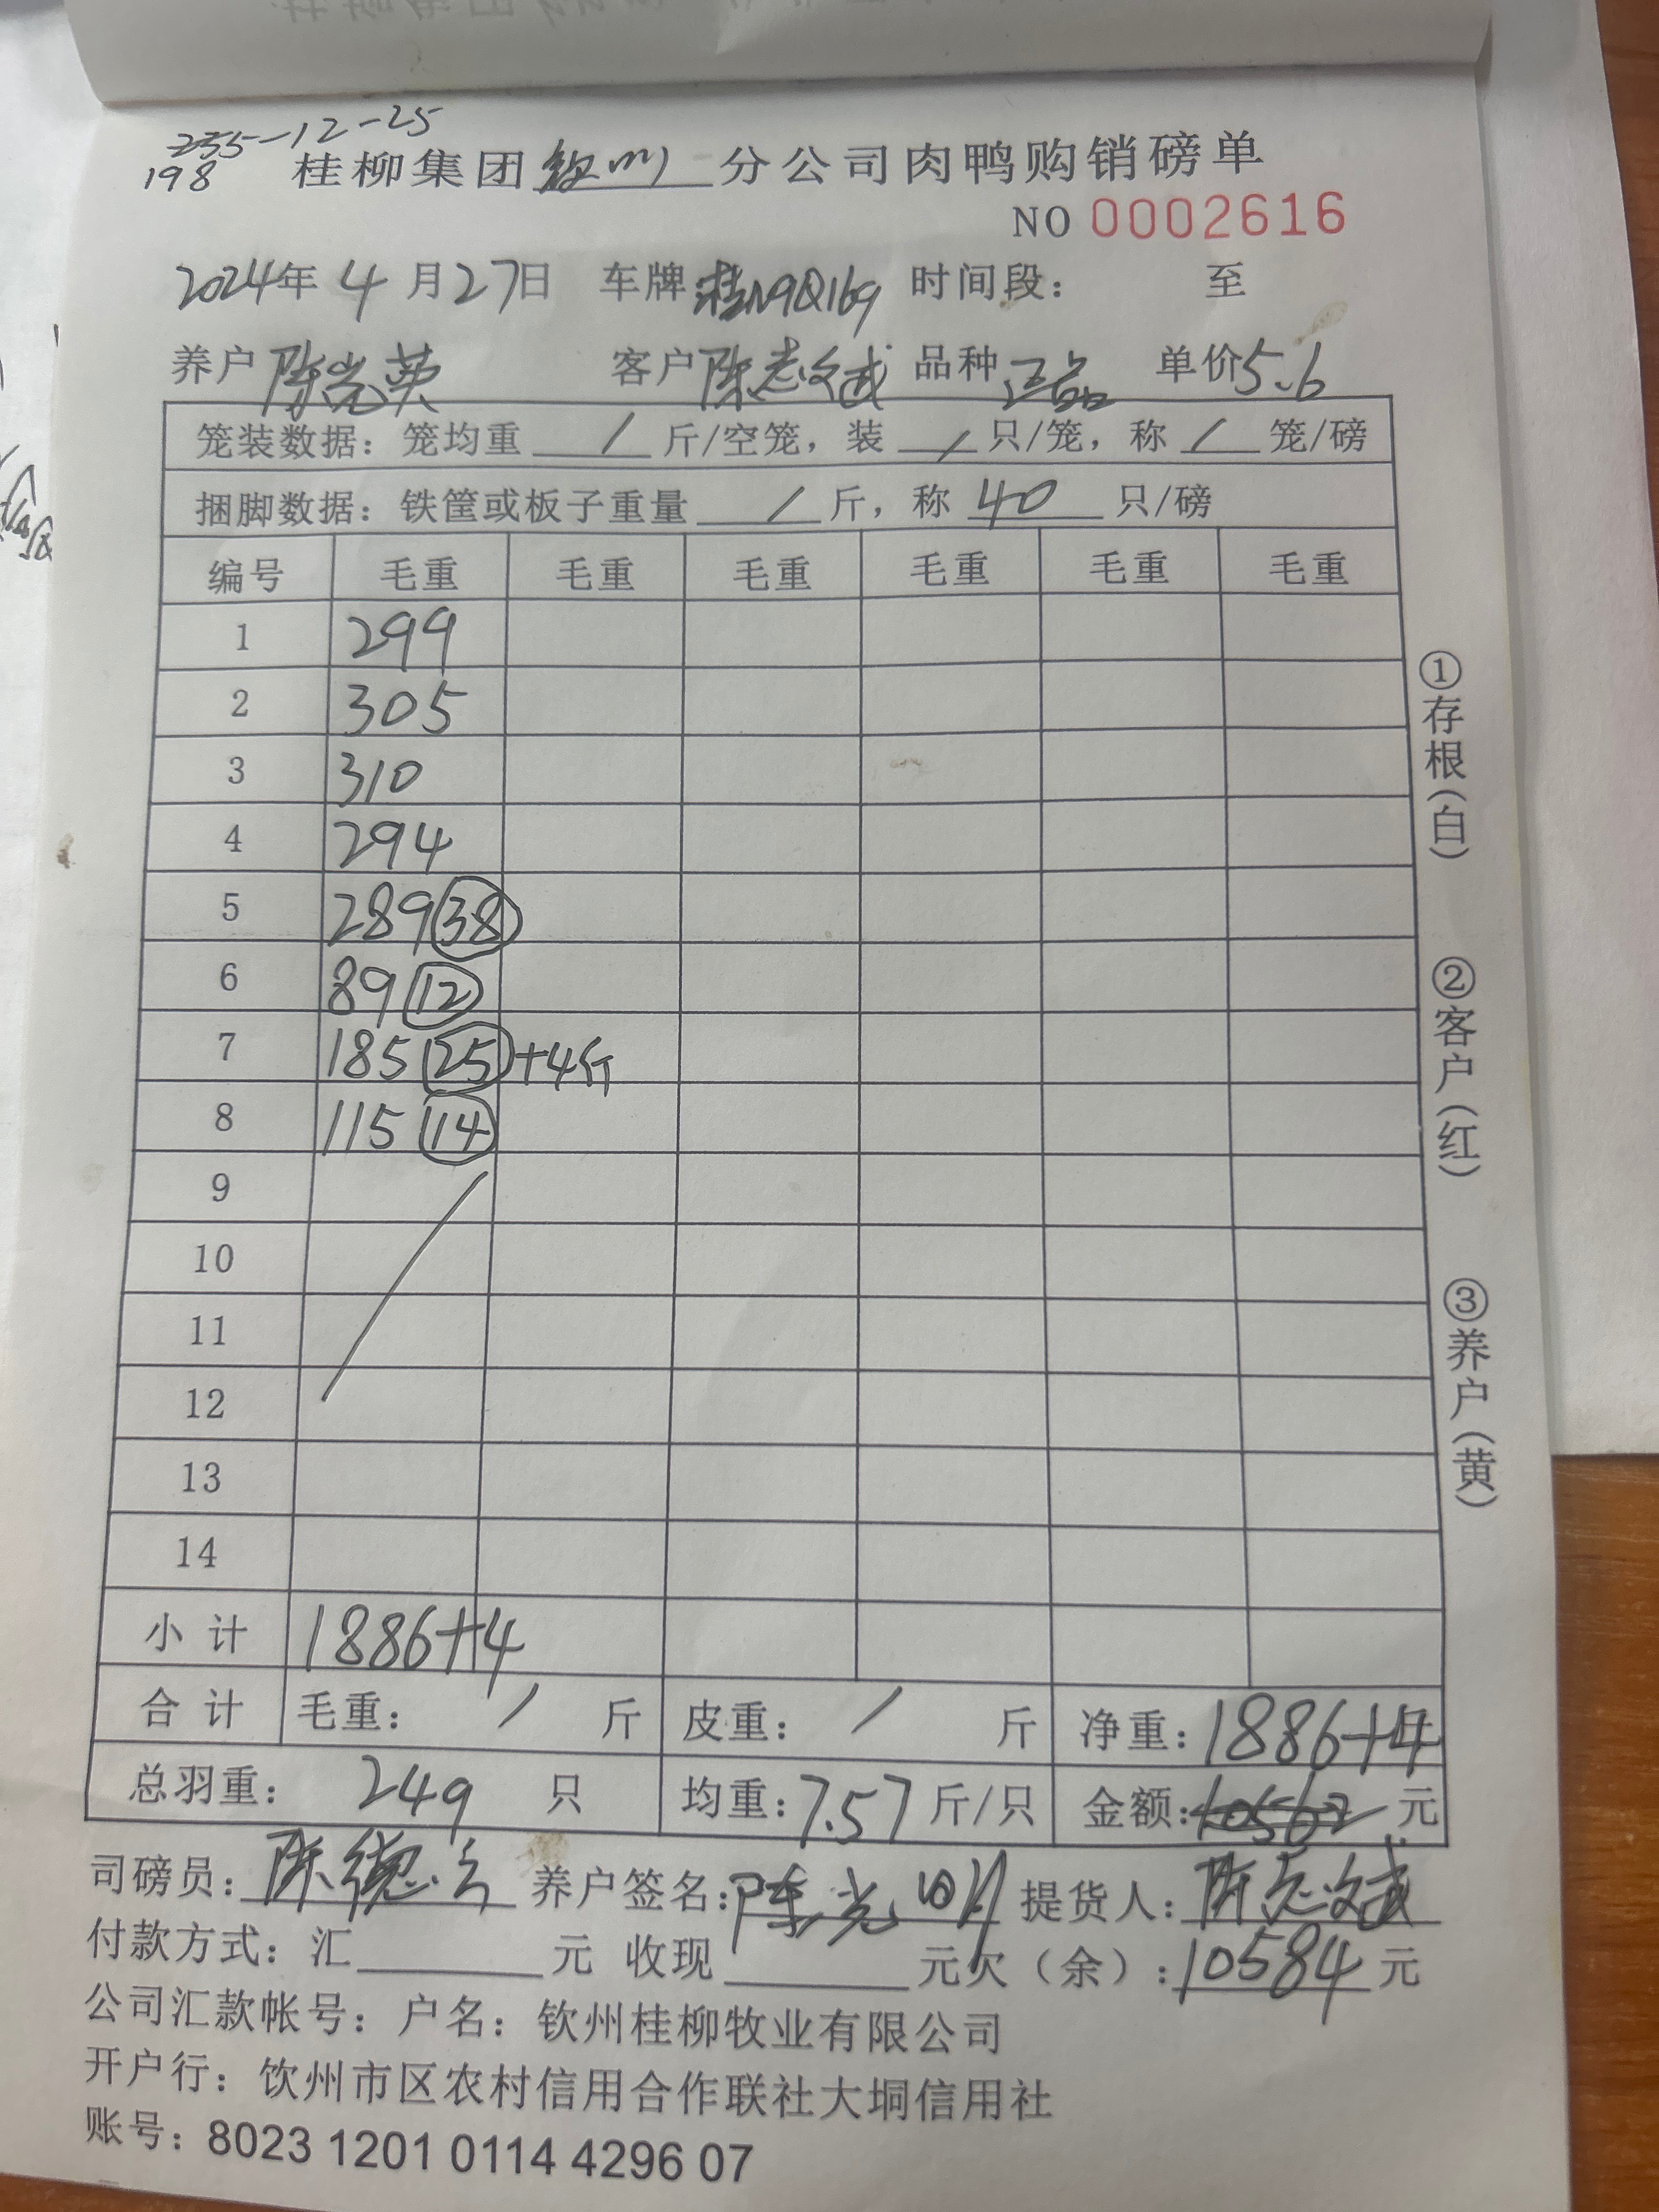 235-12-25
198
桂柳集团钦州分公司肉鸭购销磅单
NO 0002616
2024年4月27日 车牌桂N9Q169 时间段： 至
养户 陈光英 客户 陈志斌 品种 正品 单价5.6
笼装数据：笼均重 / 斤/空笼，装 / 只/笼，称 / 笼/磅
捆脚数据：铁筐或板子重量 / 斤，称 40 只/磅
编号 毛重 毛重 毛重 毛重 毛重 毛重
1 299
2 305
3 310
4 294
5 289 38
6 89 12
7 185 25 +4斤
8 115 14
9
10
11
12
13
14
小计 1886+4
合计 毛重： / 斤 皮重： / 斤 净重：1886+4
总羽重： 249 只 均重：7.57斤/只 金额：10562元
司磅员：陈德 养户签名：陈光明 提货人：陈志斌
付款方式：汇 元 收现 元欠（余）：10584元
公司汇款帐号：户名：钦州桂柳牧业有限公司
开户行：饮州市区农村信用合作联社大垌信用社
账号：8023 1201 0114 4296 07
①存根（白）
②客户（红）
③养户（黄）